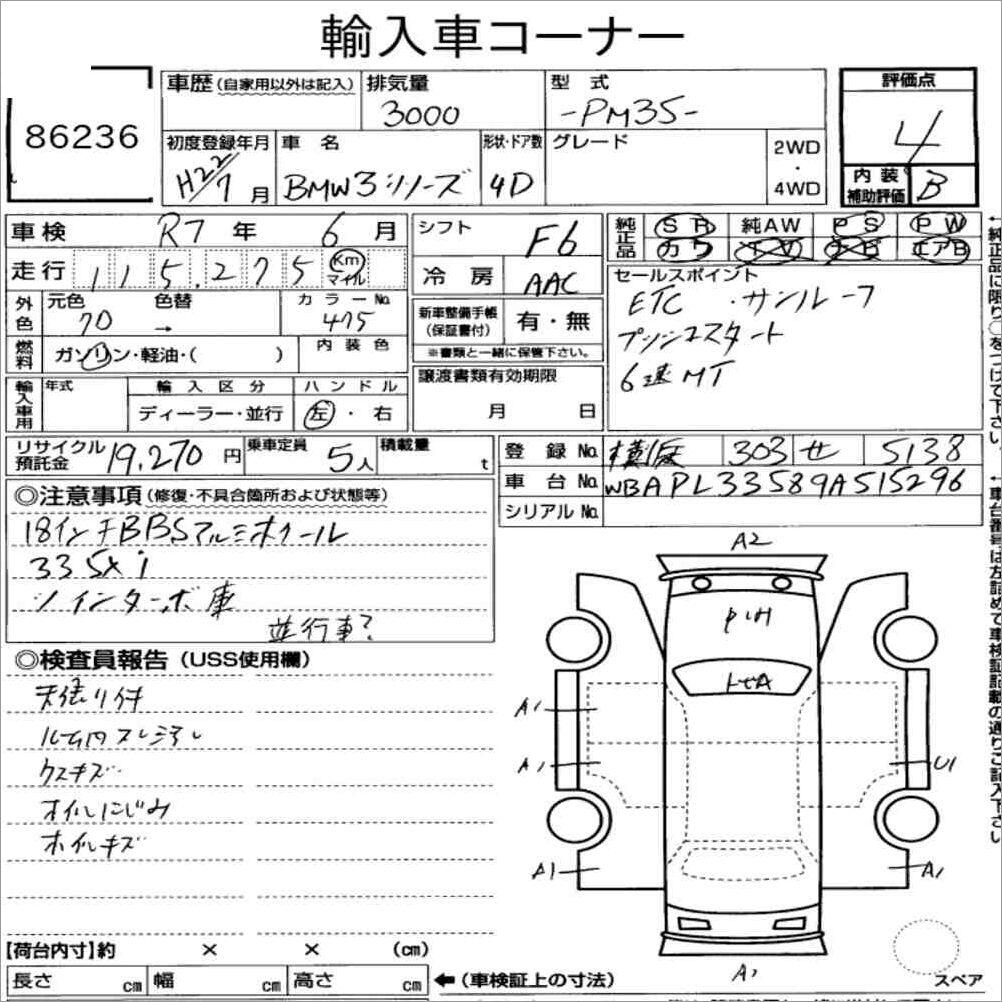 輸入車コーナー
86236
車歴(自家用以外は記入) 排気量 3000
型式 -PM35-
評価点 4
初度登録年月 H22/7月
車名 BMW3シリーズ
形状・ドア数 4D
グレード
2WD・4WD
内装補助評価 B
車検 R7年 6月
シフト F6
純正品 SR 純AW PS PW
カワ TV ナビ エアB
走行 115,275 Km マイル
冷房 AAC
セールスポイント
ETC ・サンルーフ
プッシュスタート
6速MT
外色 元色 70 色替 →
カラーNo. 475
新車整備手帳(保証書付) 有・無
※書類と一緒に保管下さい。
燃料 ガソリン・軽油・( )
内装色
輸入車用 年式
輸入区分 ディーラー・並行
ハンドル 左・右
譲渡書類有効期限
月 日
リサイクル預託金 19,270円
乗車定員 5人
積載量 t
登録No. 横浜 303 せ 5138
車台No. WBAPL33589A515296
シリアルNo.
◎注意事項(修復・不具合箇所および状態等)
18インチBBSアルミホイール
335xi
ツインターボ車
並行車?
◎検査員報告(USS使用欄)
天張り付
ルーム内スレ汚レ
ウスキズ
オイルにじみ
ホイルキズ
A2
A1
A1
A1
U1
A1
A1
スペア
【荷台内寸】約 × × (cm)
長さ cm 幅 cm 高さ cm ←(車検証上の寸法)
←純正品に限り○をつけて下さい
←車台番号は左詰めで車検証記載の通りご記入下さい